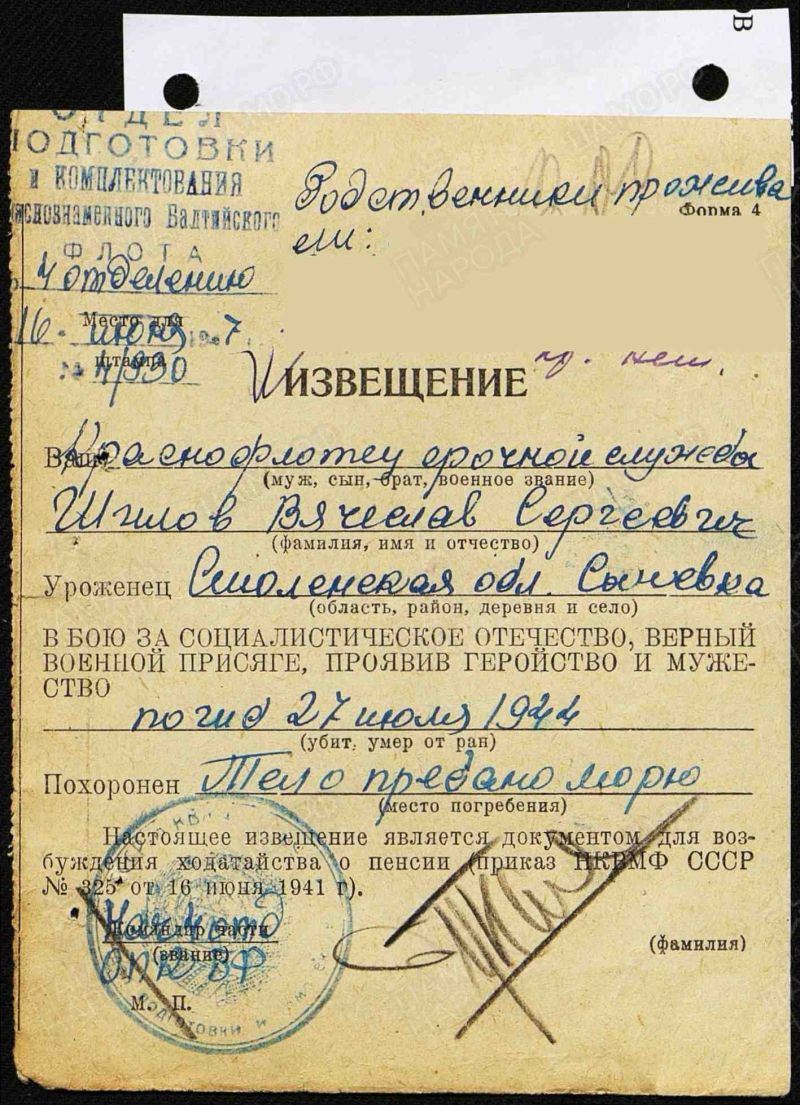 ОТДЕЛ
ПОДГОТОВКИ
И КОМПЛЕКТОВАНИЯ
Балтийского
ФЛОТА
4 отделению
Место для
16 июня 7
штампа
№ 4/930
Родственники прожива
Форма 4
ели:
ИЗВЕЩЕНИЕ
Ваш Краснофлотец срочной службы
(муж, сын, брат, военное звание)
Шилов Вячеслав Сергеевич
(фамилия, имя и отчество)
Уроженец Смоленская обл.
(область, район, деревня и село)
В БОЮ ЗА СОЦИАЛИСТИЧЕСКОЕ ОТЕЧЕСТВО, ВЕРНЫЙ
ВОЕННОЙ ПРИСЯГЕ, ПРОЯВИВ ГЕРОЙСТВО И МУЖЕ-
СТВО
погиб 27 июля 1944
(убит, умер от ран)
Похоронен Тело предано морю
(место погребения)
Настоящее извещение является документом для воз-
буждения ходатайства о пенсии (приказ НКВМФ СССР
№ 325 от 16 июня 1941 г).
Нач 4 отд
Командир части
(звание)
(фамилия)
М. П.